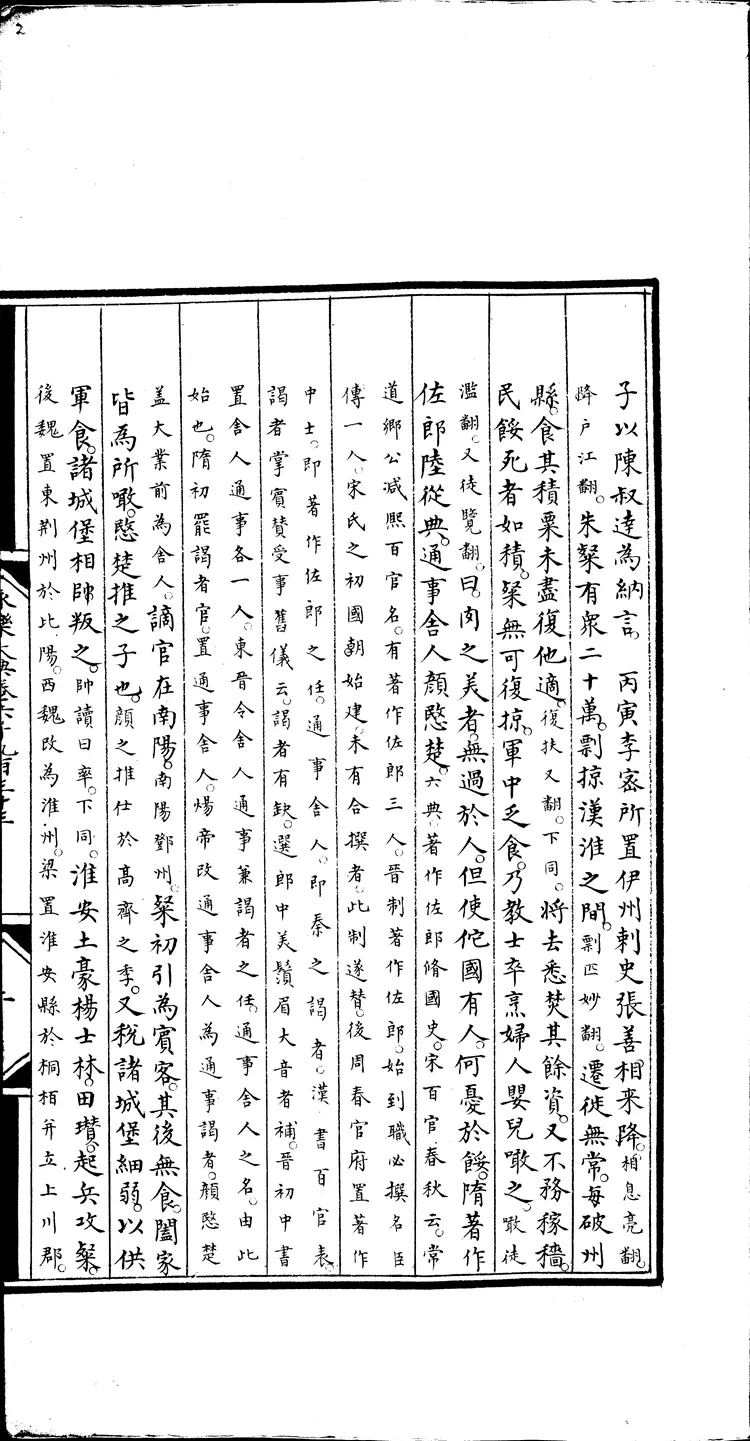 2
子以陳叔達為納言。丙寅李密所置伊州刺史張善相来降。相息亮翻。
降户江翻。朱粲有衆二十萬。剽掠漢淮之間。剽匹妙翻。遷徙無常。每破州
縣。食其積粟未盡復他適。復扶又翻。下同。將去悉焚其餘資。又不務稼穡。
民餒死者如積。粲無可復掠。軍中乏食。乃教士卒烹婦人嬰兒噉之。噉徒
濫翻。又徒覽翻。曰。肉之美者。無過於人。但使佗國有人。何憂於餒。隋著作
佐郎陸從典。通事舍人顔愍楚。六典。著作佐郎脩國史。宋百官春秋云。常
道鄉公减熈百官名。有著作佐郎三人。晉制著作佐郎。始到職必撰名臣
傳一人。宋氏之初國朝始建。未有合撰者。此制遂替。後周春官府置著作
中士。即著作佐郎之任。通事舍人。即秦之謁者。漢書百官表。
謁者掌賓賛受事舊儀云。謁者有缺。選郎中美鬚眉大音者補。晉初中書
置舍人通事各一人。東晉令舍人通事兼謁者之任。通事舍人之名。由此
始也。隋初罷謁者官。置通事舍人。煬帝改通事舍人為通事謁者。顔愍楚
盖大業前為舍人。謫官在南陽。南陽鄧州。粲初引為賓客。其後無食。闔家
皆為所噉。愍楚推之子也。顔之推仕於高齊之季。又税諸城堡細弱。以供
軍食。諸城堡相帥叛之。帥讀曰率。下同。淮安土豪楊士林。田瓚。起兵攻粲。
後魏置東荆州於比陽。西魏改為淮州。梁置淮安縣於桐栢并立上川郡。
永樂大典卷